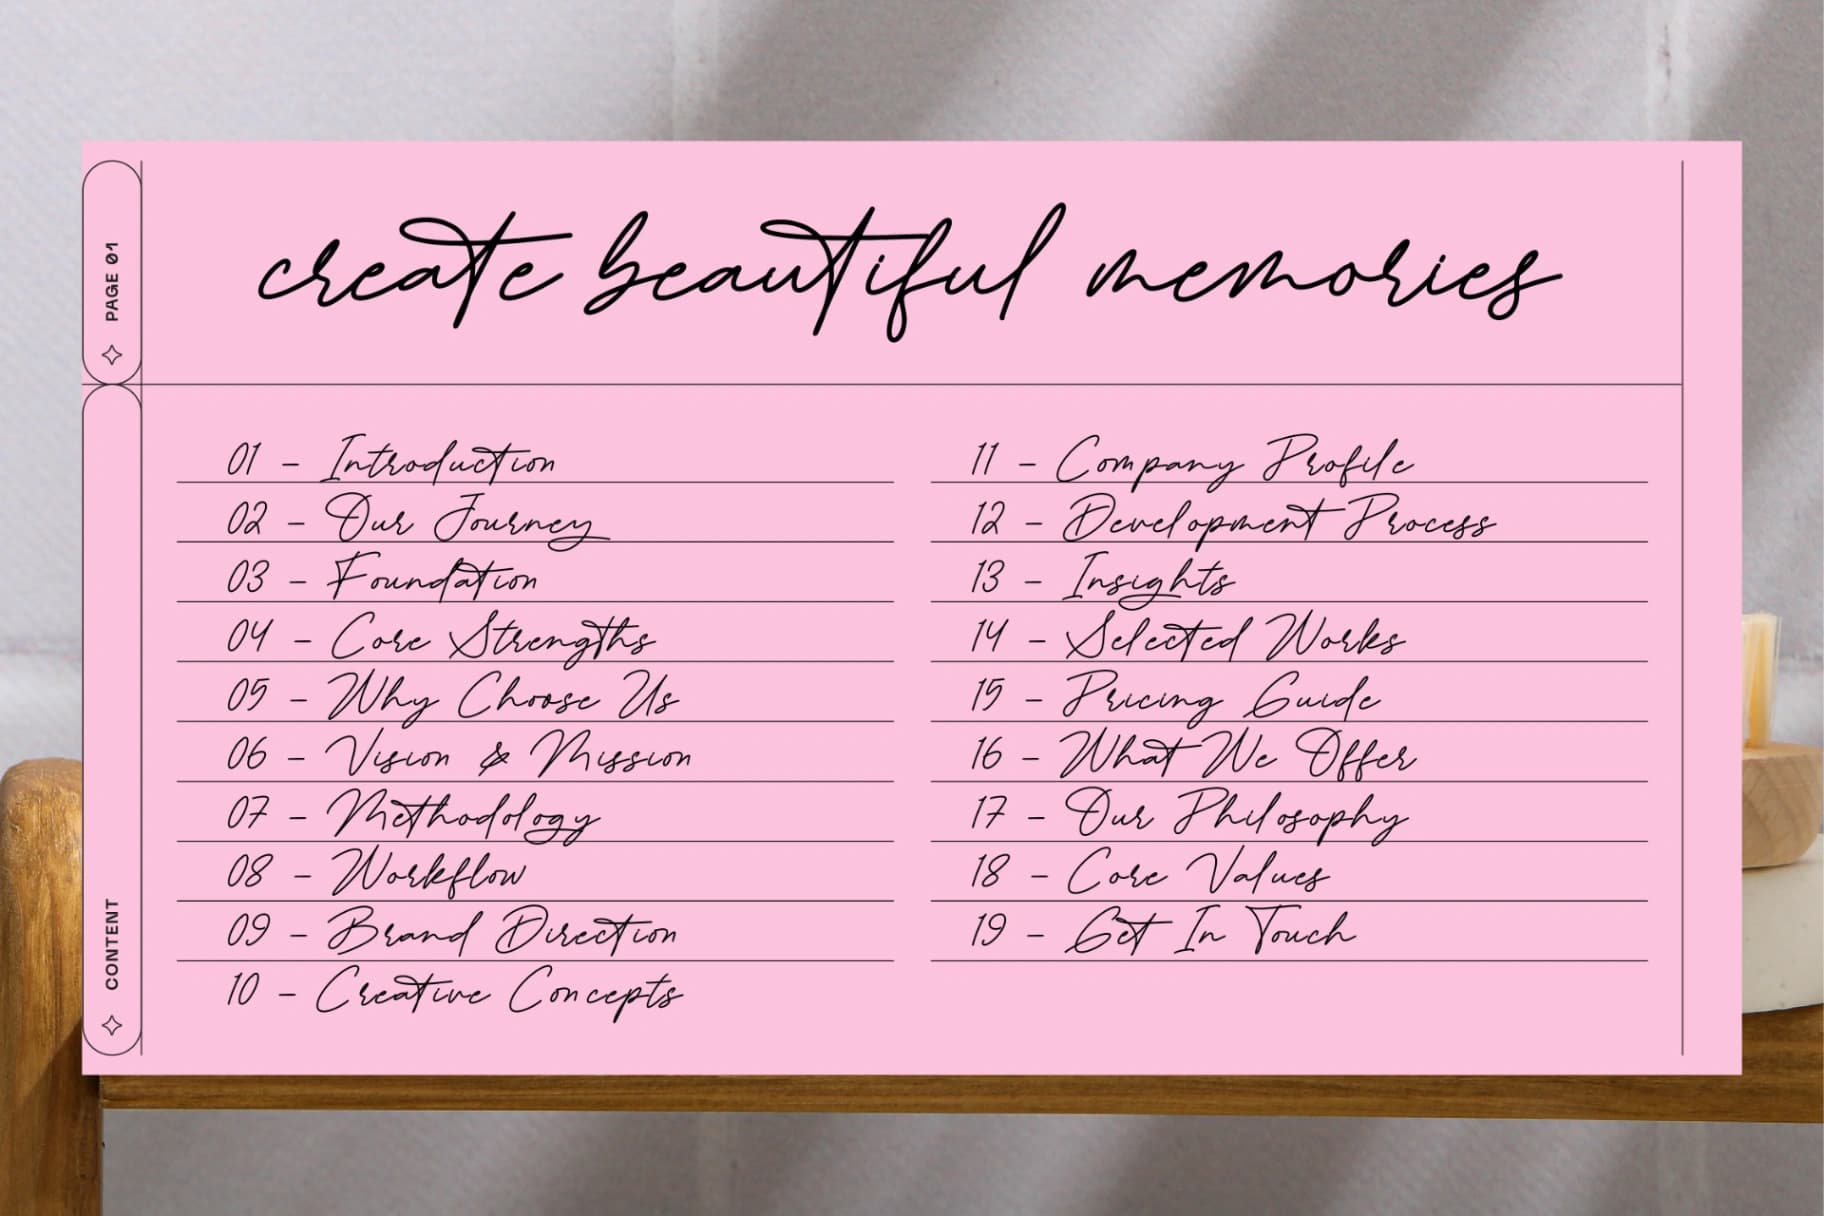 PAGE 01
create beautiful memories
CONTENT
01 - Introduction
02 - Our Journey
03 - Foundation
04 - Core Strengths
05 - Why Choose Us
06 - Vision & Mission
07 - Methodology
08 - Workflow
09 - Brand Direction
10 - Creative Concepts
11 - Company Profile
12 - Development Process
13 - Insights
14 - Selected Works
15 - Pricing Guide
16 - What We Offer
17 - Our Philosophy
18 - Core Values
19 - Get In Touch